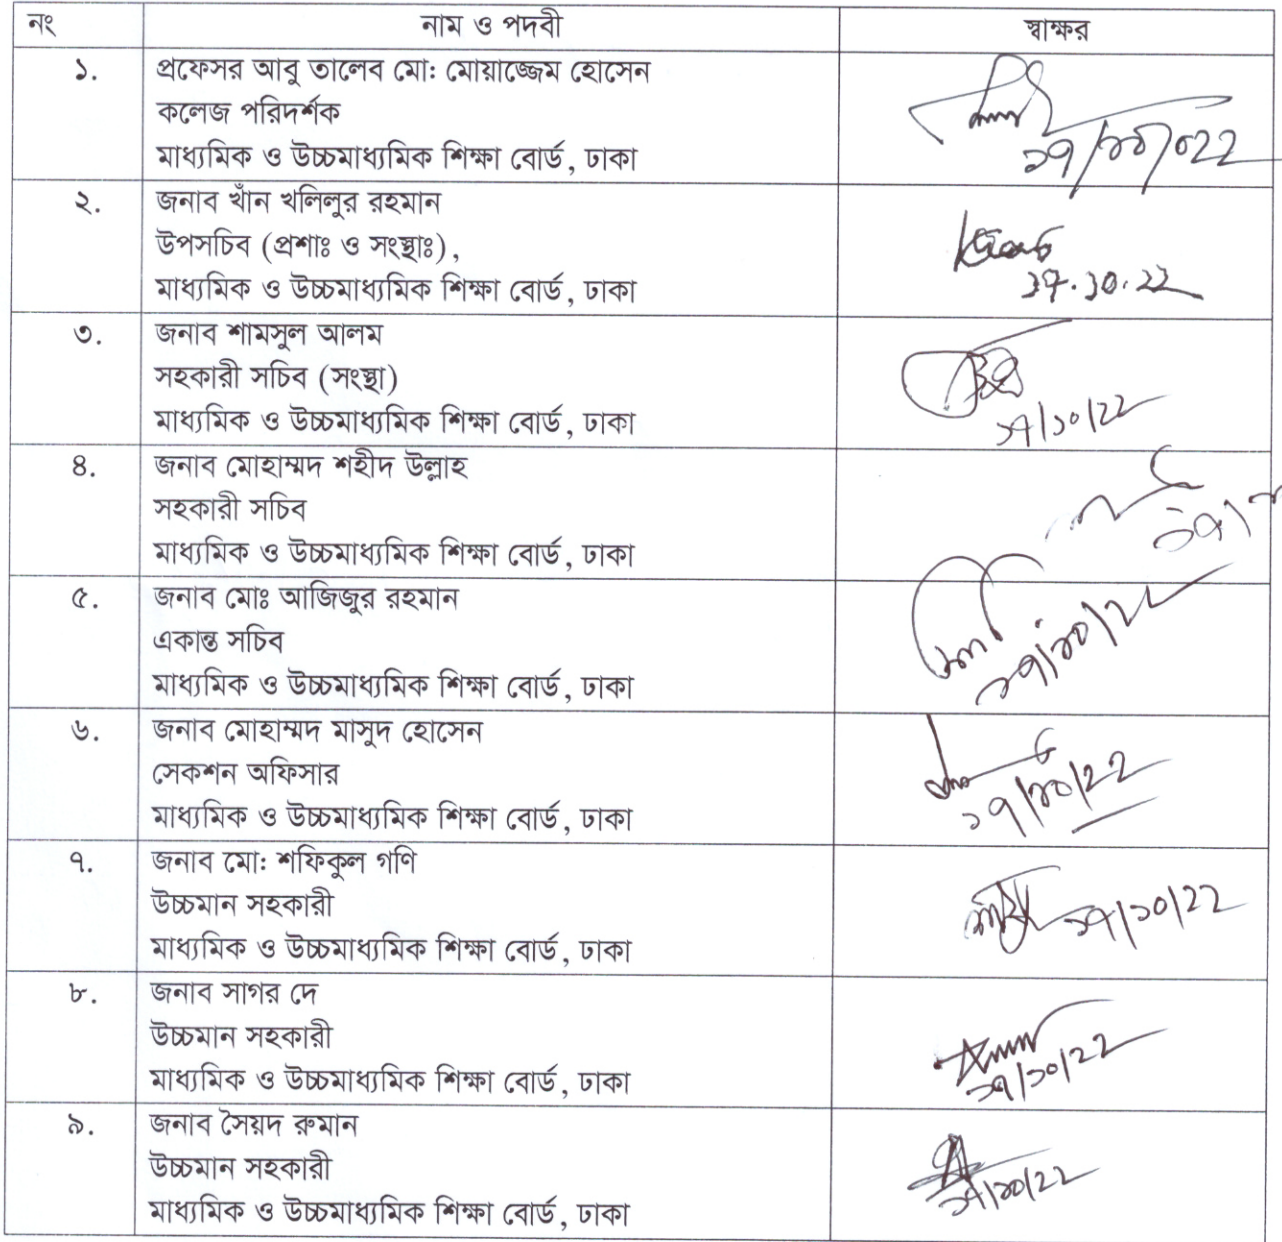 নং নাম ও পদবী স্বাক্ষর
১. প্রফেসর আবু তালেব মো: মোয়াজ্জেম হোসেন
কলেজ পরিদর্শক
মাধ্যমিক ও উচ্চমাধ্যমিক শিক্ষা বোর্ড, ঢাকা
২. জনাব খাঁন খলিলুর রহমান
উপসচিব (প্রশাঃ ও সংস্থাঃ),
মাধ্যমিক ও উচ্চমাধ্যমিক শিক্ষা বোর্ড, ঢাকা
৩. জনাব শামসুল আলম
সহকারী সচিব (সংস্থা)
মাধ্যমিক ও উচ্চমাধ্যমিক শিক্ষা বোর্ড, ঢাকা
৪. জনাব মোহাম্মদ শহীদ উল্লাহ
সহকারী সচিব
মাধ্যমিক ও উচ্চমাধ্যমিক শিক্ষা বোর্ড, ঢাকা
৫. জনাব মোঃ আজিজুর রহমান
একান্ত সচিব
মাধ্যমিক ও উচ্চমাধ্যমিক শিক্ষা বোর্ড, ঢাকা
৬. জনাব মোহাম্মদ মাসুদ হোসেন
সেকশন অফিসার
মাধ্যমিক ও উচ্চমাধ্যমিক শিক্ষা বোর্ড, ঢাকা
৭. জনাব মো: শফিকুল গণি
উচ্চমান সহকারী
মাধ্যমিক ও উচ্চমাধ্যমিক শিক্ষা বোর্ড, ঢাকা
৮. জনাব সাগর দে
উচ্চমান সহকারী
মাধ্যমিক ও উচ্চমাধ্যমিক শিক্ষা বোর্ড, ঢাকা
৯. জনাব সৈয়দ রুমান
উচ্চমান সহকারী
মাধ্যমিক ও উচ্চমাধ্যমিক শিক্ষা বোর্ড, ঢাকা